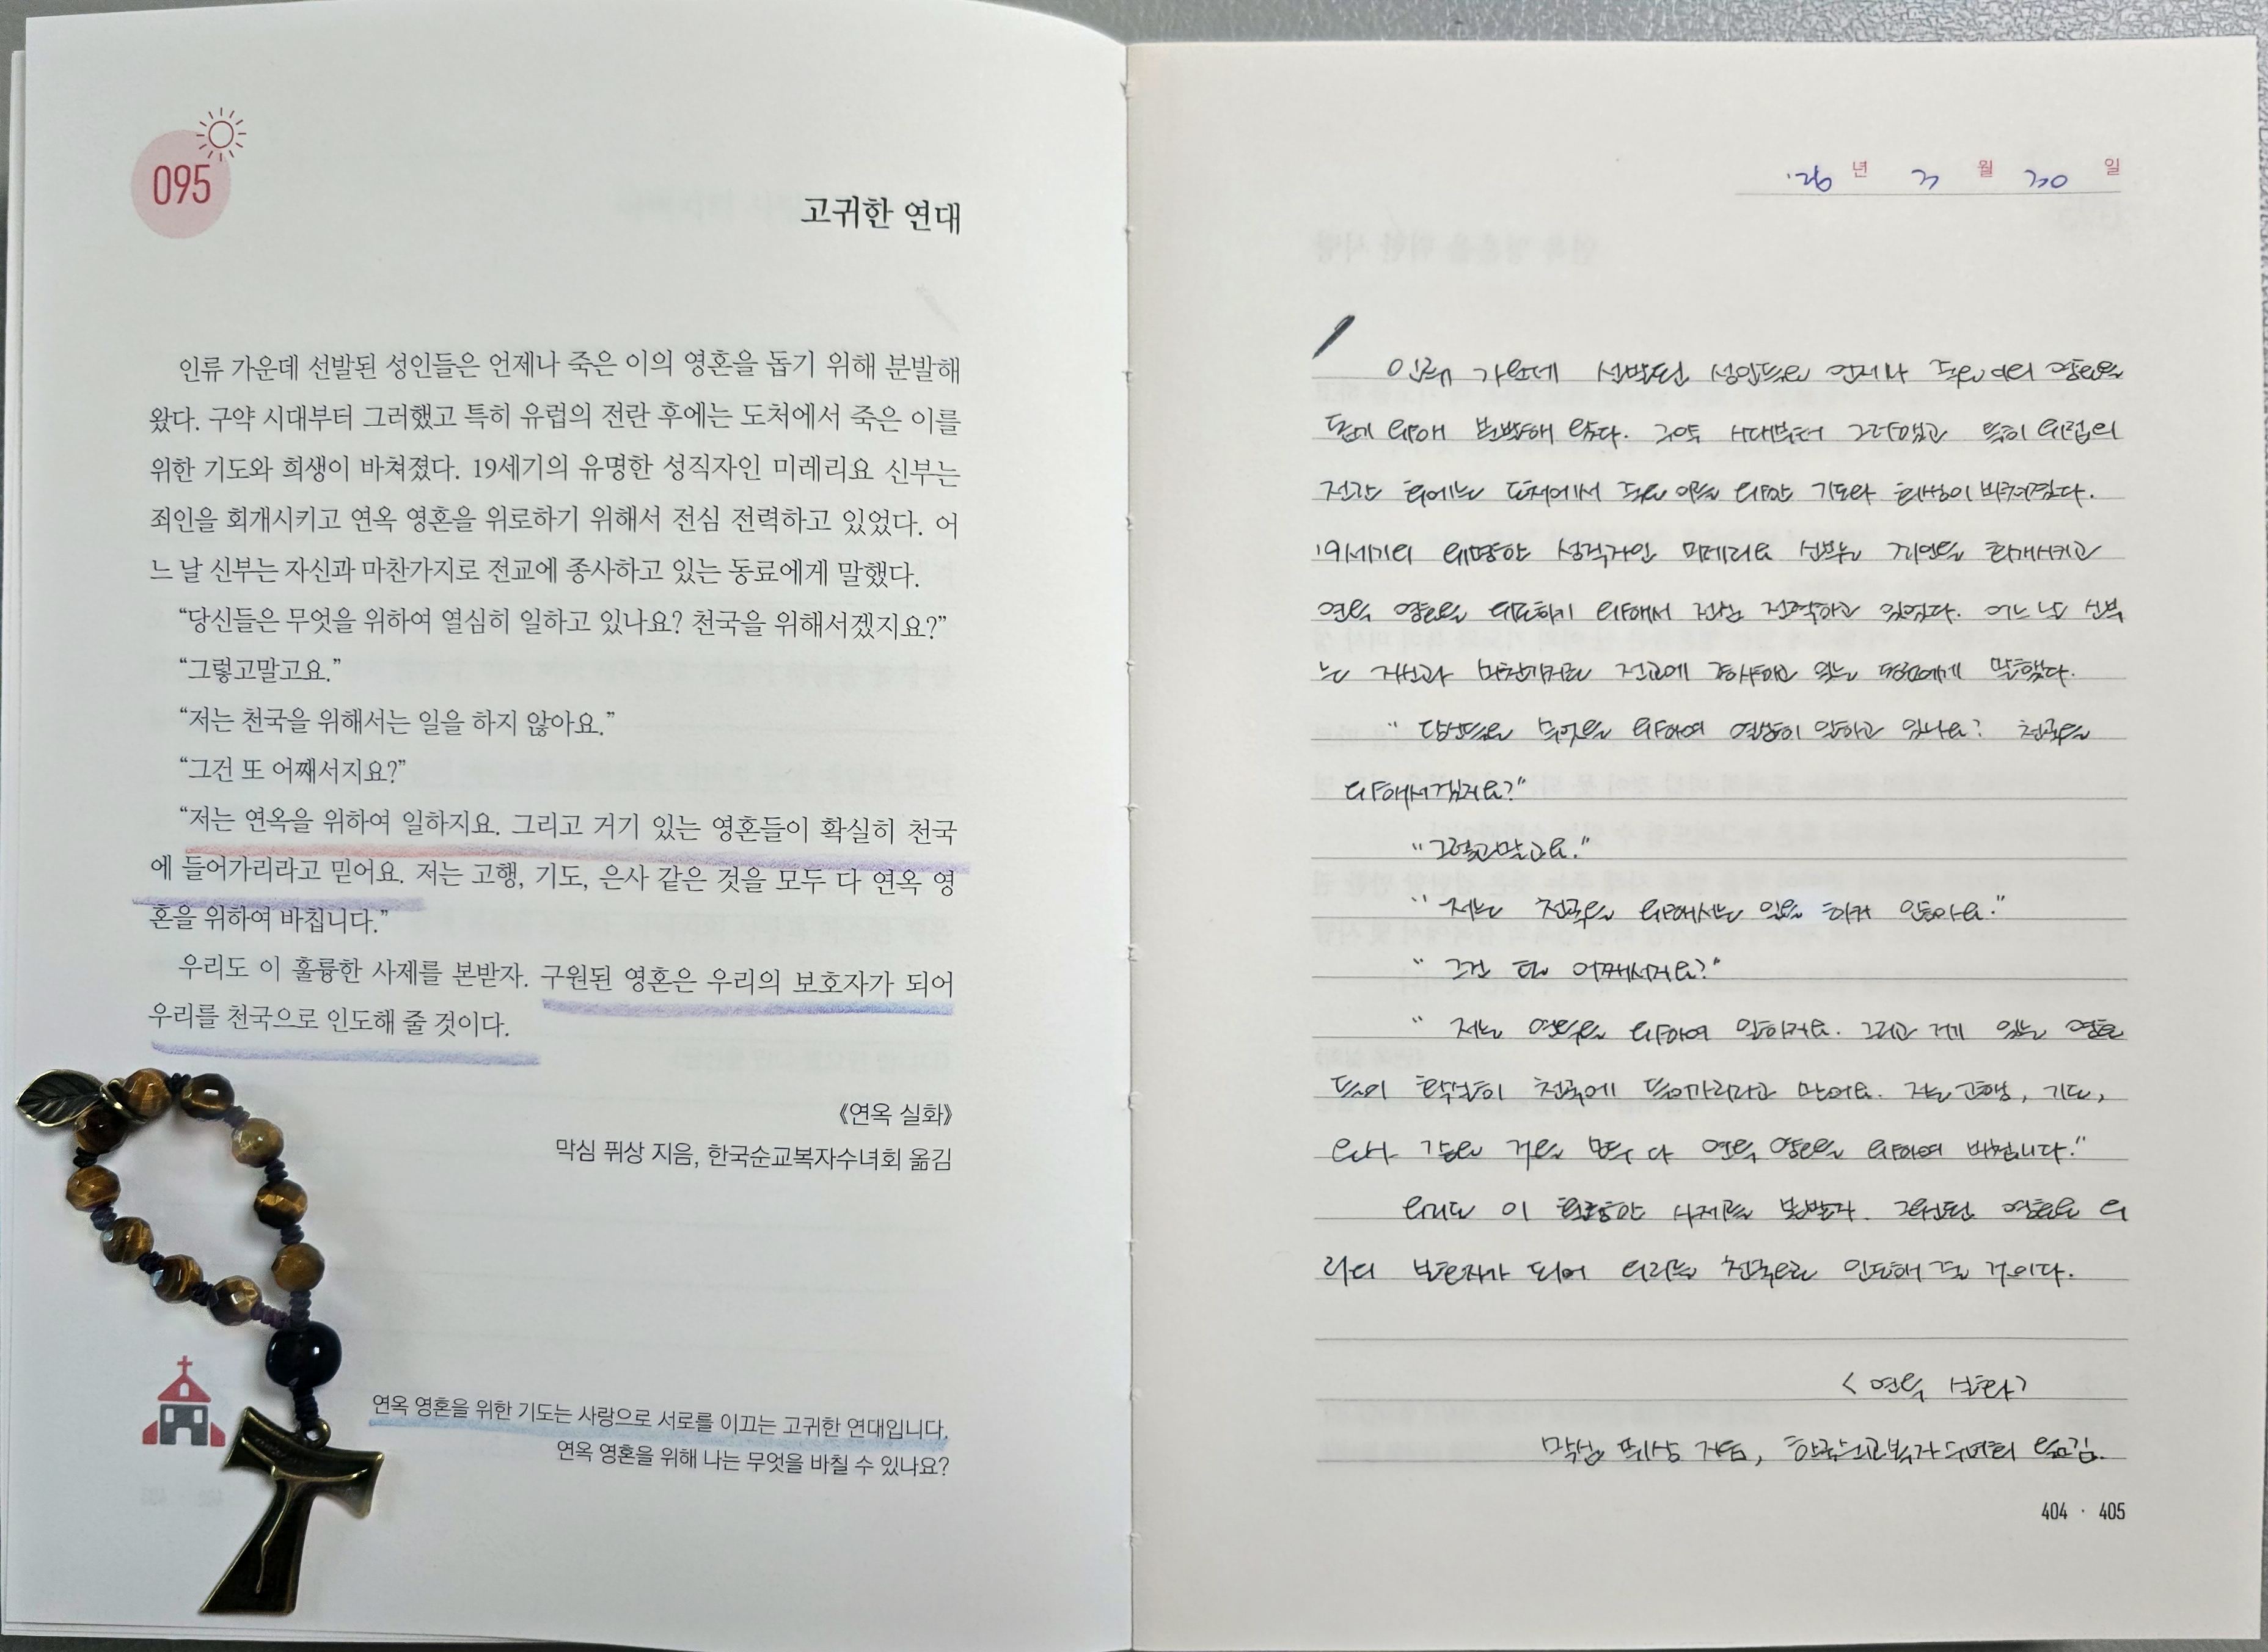 095
고귀한 연대
인류 가운데 선발된 성인들은 언제나 죽은 이의 영혼을 돕기 위해 분발해
왔다. 구약 시대부터 그러했고 특히 유럽의 전란 후에는 도처에서 죽은 이를
위한 기도와 희생이 바쳐졌다. 19세기의 유명한 성직자인 미레리요 신부는
죄인을 회개시키고 연옥 영혼을 위로하기 위해서 전심 전력하고 있었다. 어
느 날 신부는 자신과 마찬가지로 전교에 종사하고 있는 동료에게 말했다.
“당신들은 무엇을 위하여 열심히 일하고 있나요? 천국을 위해서겠지요?”
“그렇고말고요.”
“저는 천국을 위해서는 일을 하지 않아요.”
“그건 또 어째서지요?”
“저는 연옥을 위하여 일하지요. 그리고 거기 있는 영혼들이 확실히 천국
에 들어가리라고 믿어요. 저는 고행, 기도, 은사 같은 것을 모두 다 연옥 영
혼을 위하여 바칩니다.”
우리도 이 훌륭한 사제를 본받자. 구원된 영혼은 우리의 보호자가 되어
우리를 천국으로 인도해 줄 것이다.
《연옥 실화》
막심 퓌상 지음, 한국순교복자수녀회 옮김
연옥 영혼을 위한 기도는 사랑으로 서로를 이끄는 고귀한 연대입니다.
연옥 영혼을 위해 나는 무엇을 바칠 수 있나요?
'26 년 3 월 30 일
인류 가운데 선발된 성인들은 언제나 죽은 이의 영혼을
돕기 위해 분발해 왔다. 구약 시대부터 그러했고 특히 유럽의
전란 후에는 도처에서 죽은 이를 위한 기도와 희생이 바쳐졌다.
19세기의 유명한 성직자인 미레리요 신부는 죄인을 회개시키고
연옥 영혼을 위로하기 위해서 전심 전력하고 있었다. 어느 날 신부
는 자신과 마찬가지로 전교에 종사하고 있는 동료에게 말했다.
“당신들은 무엇을 위하여 열심히 일하고 있나요? 천국을
위해서겠지요?”
“그렇고말고요.”
“저는 천국을 위해서는 일을 하지 않아요.”
“그건 또 어째서지요?”
“저는 연옥을 위하여 일하지요. 그리고 거기 있는 영혼
들이 확실히 천국에 들어가리라고 믿어요. 저는 고행, 기도,
은사 같은 것을 모두 다 연옥 영혼을 위하여 바칩니다.”
우리도 이 훌륭한 사제를 본받자. 구원된 영혼은 우
리의 보호자가 되어 우리를 천국으로 인도해 줄 것이다.
<연옥 실화>
막심 퓌상 지음, 한국순교복자수녀회 옮김.
404 · 405